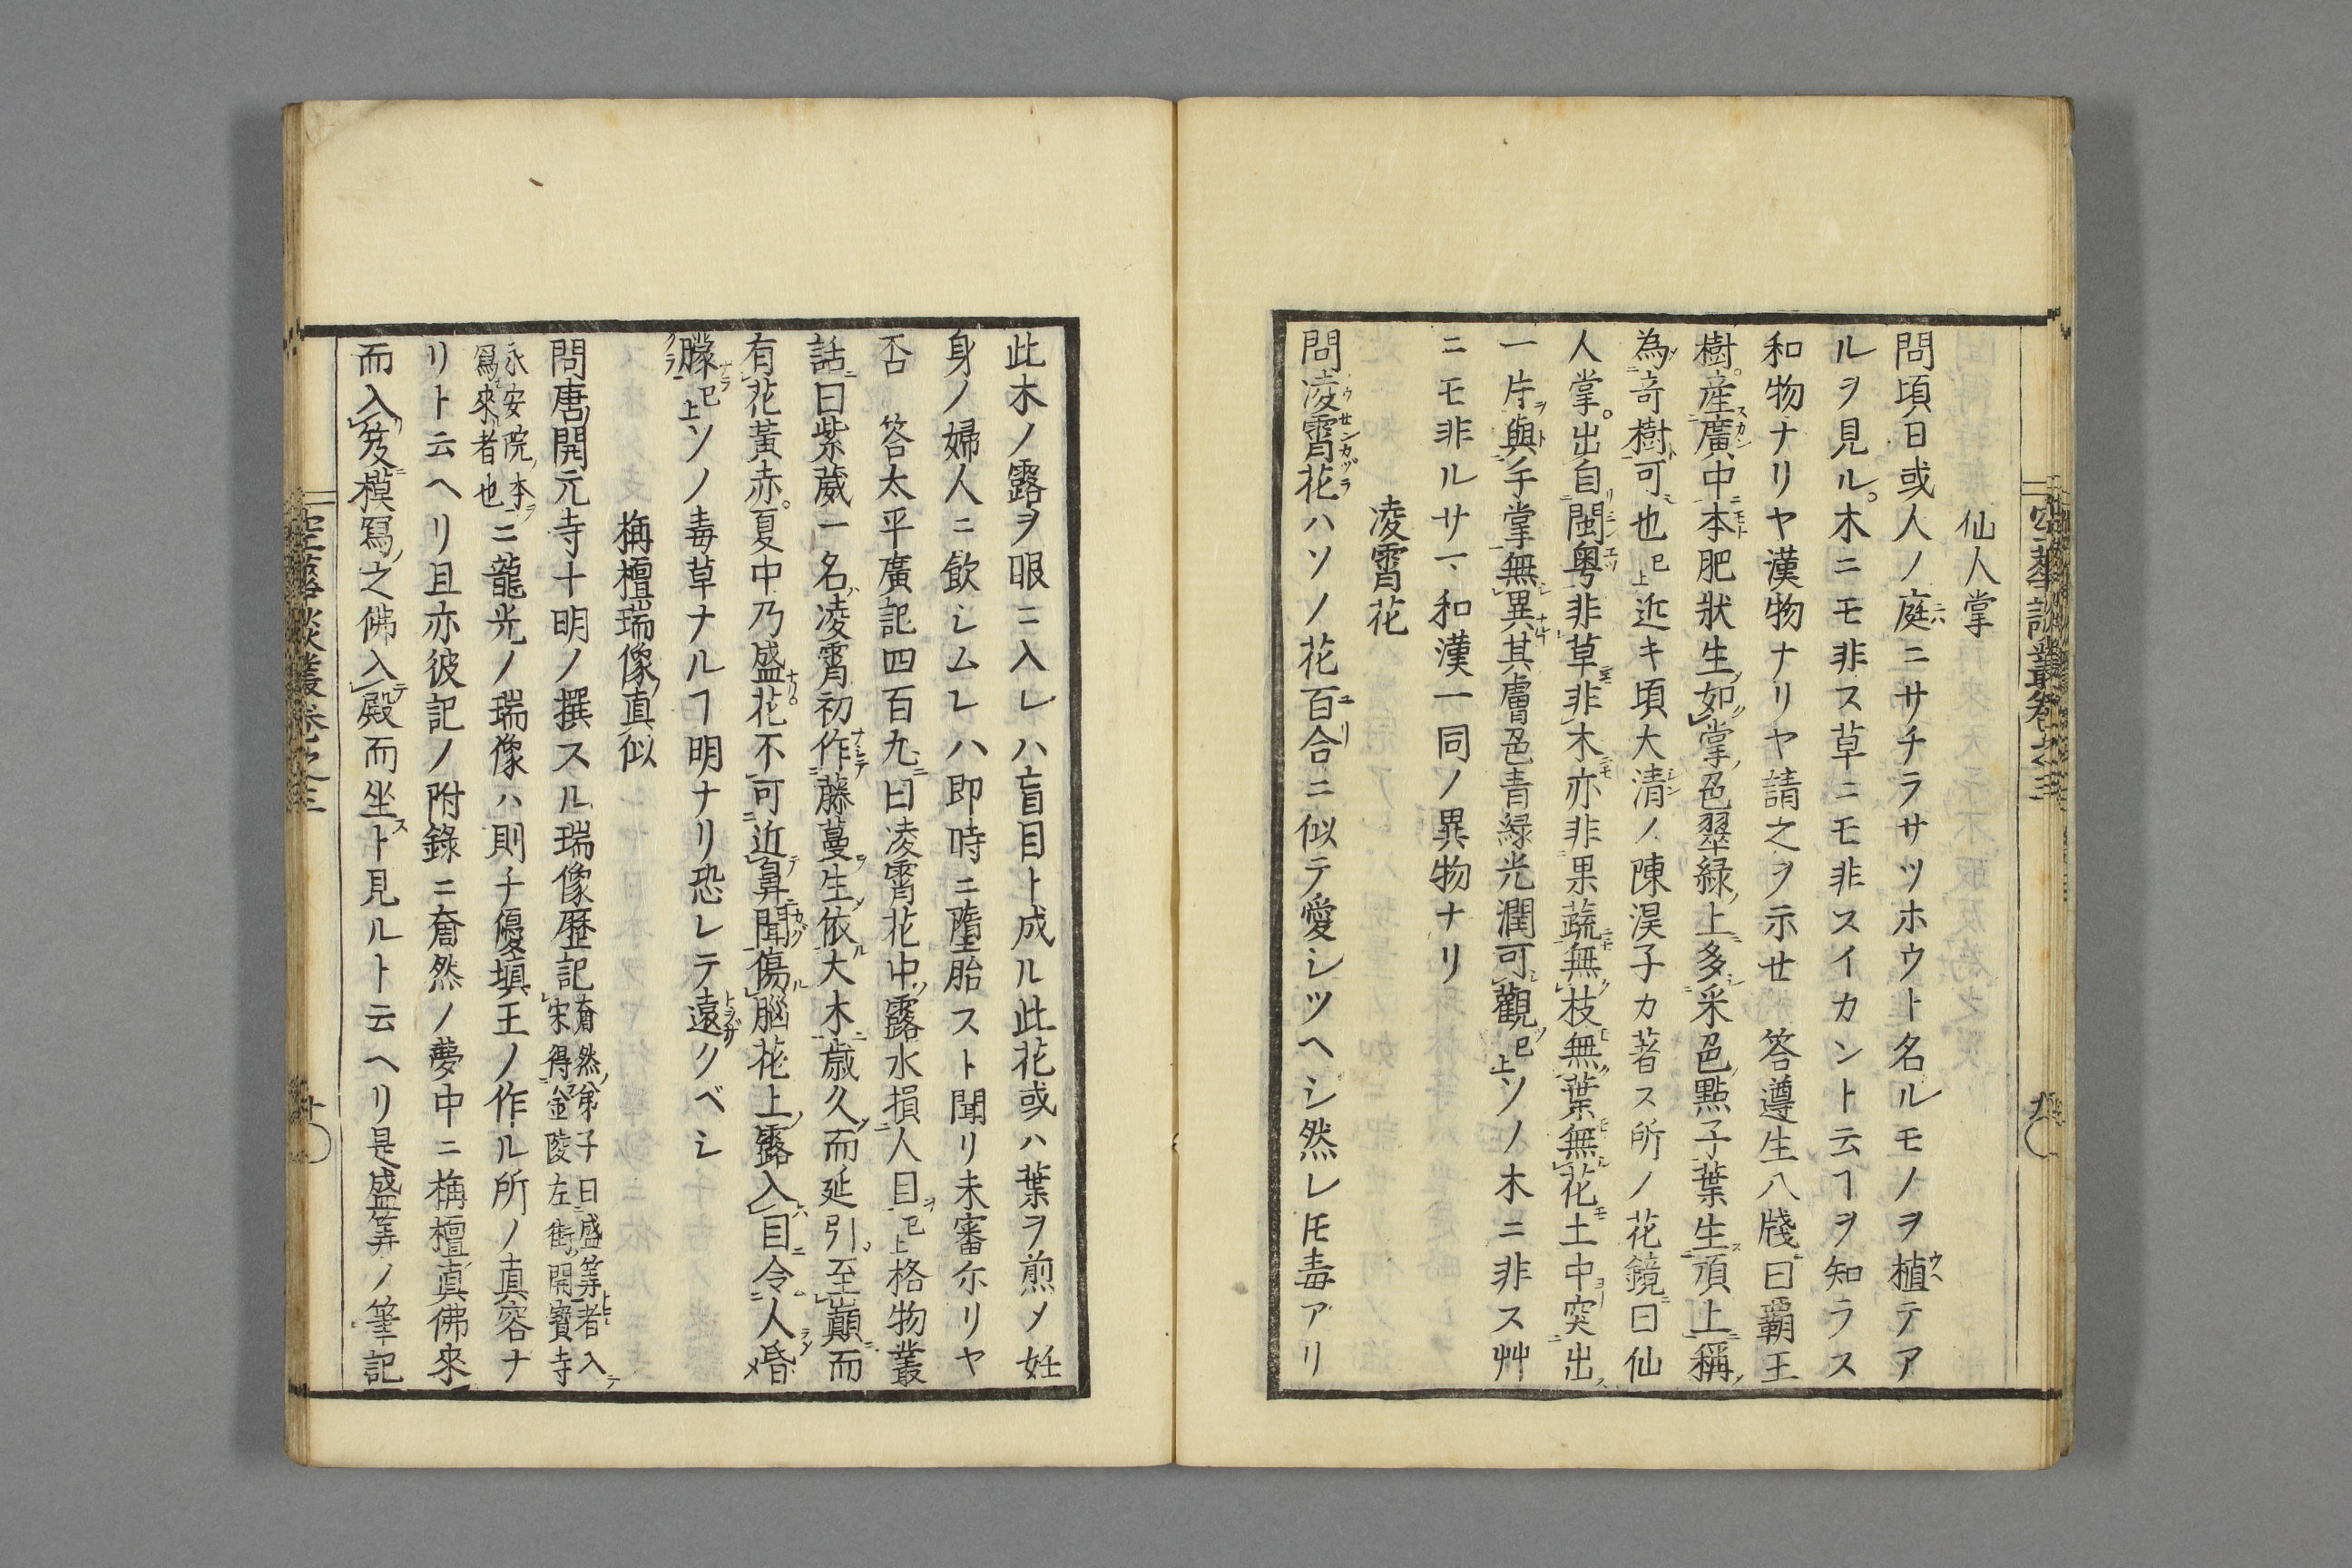 仙人掌
問頃日或人ノ庭ニサチラサツホウト名ルモノヲ植テア
ルヲ見ル。木ニモ非ス草ニモ非スイカント云ヿヲ知ラス
和物ナリヤ漢物ナリヤ請之ヲ示せ　答遵生八牋曰覇王
樹。産廣中本肥狀生如掌色翠緑上多米色點子葉生頂上稱
為竒樹可也已上近キ頃大清ノ陳淏子カ著ス所ノ花鏡曰仙
人掌。出自閩粤非草非木亦非果蔬無枝無葉無花土中突出
一片與手掌無異其膚色青緑光潤可觀已上ソノ木ニ非ス艸
ニモ非ルサマ、和漢一同ノ異物ナリ
凌霄花
問凌霄花ハソノ花百合ニ似テ愛シツヘシ然レ𪜈毒アリ
此木ノ露ヲ眼ニ入レハ盲目ト成ル此花或ハ葉ヲ煎メ妊
身ノ婦人ニ飮シムレハ即時ニ墮胎スト聞リ未審尓リヤ
否　答太平廣記四百九曰凌霄花中露水損人目已上格物叢
話曰紫葳一名凌霄初作藤蔓生依大木歳久而延引至巔而
有花黃赤。夏中乃盛花不可近鼻聞傷腦花上露入目令人昏
朦已上ソノ毒草ナルヿ明ナリ恐レテ遠クベシ
栴檀瑞像真似
問唐開元寺十明ノ撰スル瑞像歷記奝然弟子曰盛筭者入
宋得金陵左街開寶寺
永安院本
寫來者也ニ龍光ノ瑞像ハ則チ優塡王ノ作ル所ノ真容ナ
リト云ヘリ且亦彼記ノ附錄ニ奝然ノ夢中ニ栴檀真佛來
而入笈模寫之佛入殿而坐ト見ルト云ヘリ是盛筭ノ筆記